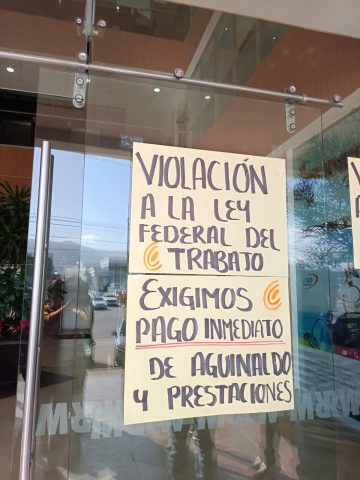 VIOLACIÓN
A LA LEY
FEDERAL DEL
TRABAJO
EXIGIMOS
PAGO INMEDIATO
DE AGUINALDO
Y PRESTACIONES